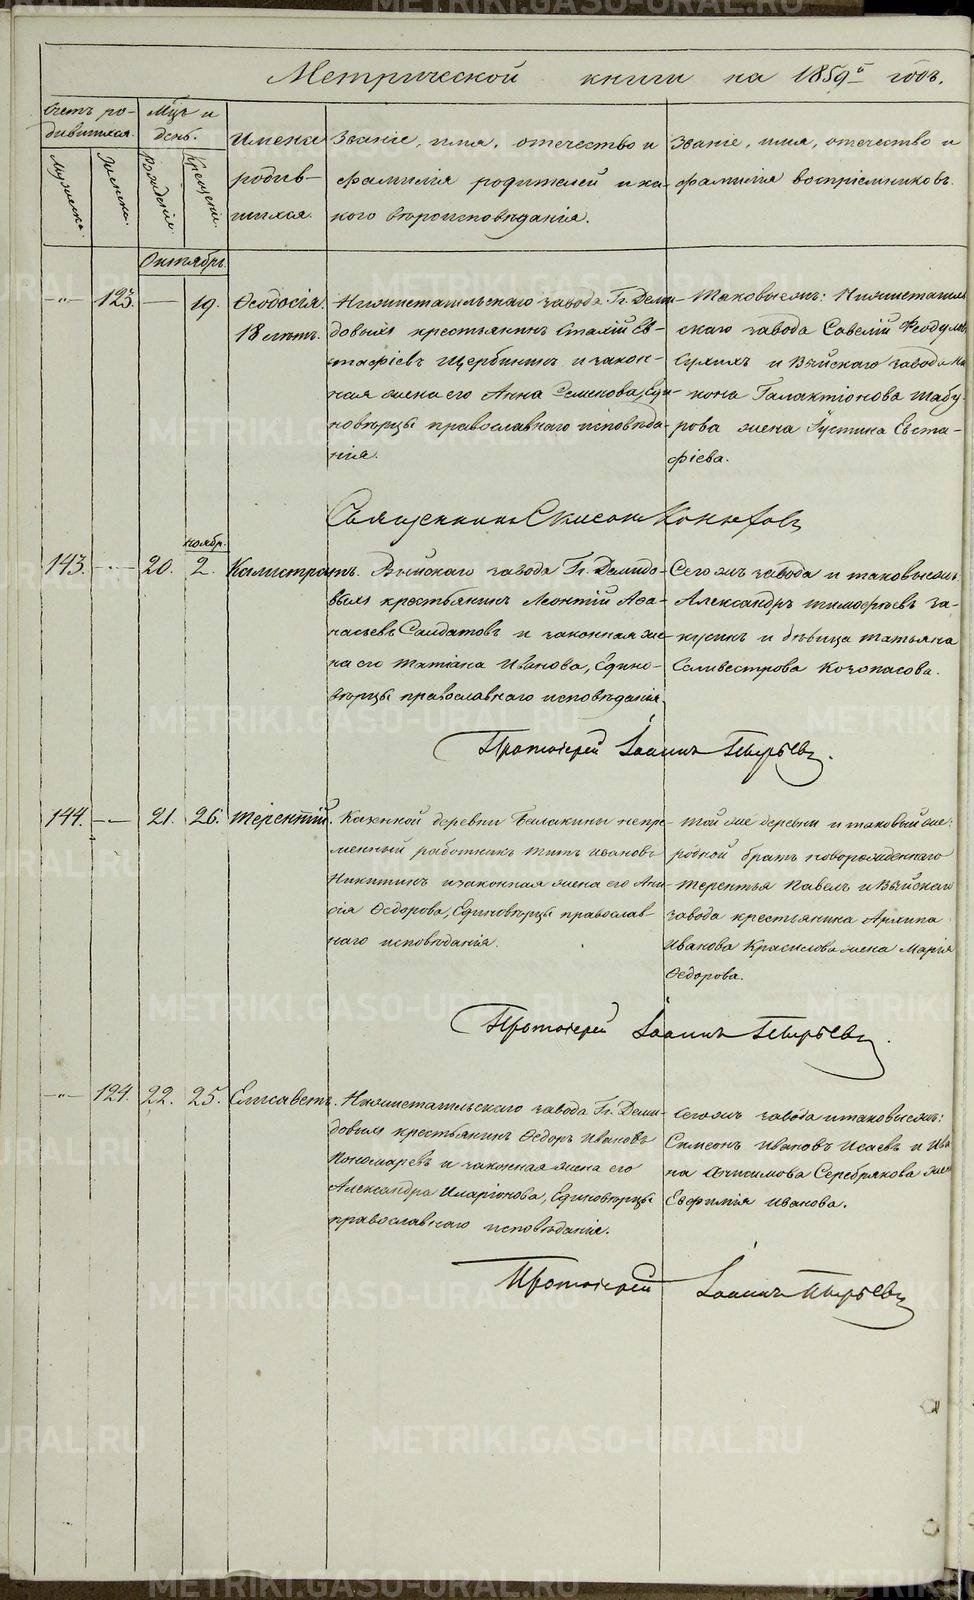 Метрической книги на 1859й годъ.
Счетъ ро-
дившихся.
Мцъ и
день.
Имена
родив-
шихся.
Званіе, имя, отечество и
фамилія родителей и ка-
кого вѣроисповѣданія.
Званіе, имя, отечество и
фамилія воспріемниковъ.
Мужеска.
Женска.
Рожденія.
Крещенія.
Октябрь
-"- 123. — 19. Ѳеодосія.
18 лѣтъ.
Нижнетагильскаго завода Гг. Деми-
довыхъ крестьянинъ Стахій Ев-
стафіевъ Щербининъ и закон-
ная жена его Анна Семенова, Еди-
новѣрцы православнаго исповѣда-
нія.
Таковыежъ: Нижнетагиль
скаго завода Савелій Ѳеодуло
Сухихъ и Выйскаго завода Ни
кона Галактіонова Шабу-
рова жена Іустина Евста-
фіева.
Священникъ Симеонъ Конюховъ
ноябр.
143. -"- 20. 2. Калистратъ.
Выйскаго завода Гг. Демидо-
выхъ крестьянинъ Леонтій Аѳа-
насьевъ Солдатовъ и законная же-
на его Татіана Иванова, Едино-
вѣрцы православнаго исповѣданія.
Сегожъ завода и таковыежъ:
Александръ Тимофѣевъ За-
кусинъ и дѣвица Татьяна
Селивестрова Козопасова.
Протоіерей Іоаннъ Пырьевъ.
144. -"- 21. 26. Терентій.
Казенной деревни Балакины непре-
менный работникъ Титъ Ивановъ
Никитинъ и законная жена его Ани-
сія Ѳедорова, Единовѣрцы православ-
наго исповѣданія.
Той же деревни и таковый же:
родной братъ новорожденнаго
Терентья Павелъ и Выйскаго
завода крестьянина Архипа
Иванова Красилова жена Марія
Ѳедорова.
Протоіерей Іоаннъ Пырьевъ.
-"- 124. 22. 25. Елисаветъ.
Нижнетагильскаго завода Гг. Деми-
довыхъ крестьянинъ Ѳедоръ Ивановъ
Пономаревъ и законная жена его
Александра Иларіонова, Единовѣрцы
православнаго исповѣданія.
Сегожъ завода и таковыежъ:
Симеонъ Ивановъ Исаевъ и Ива
на Анисимова Серебрякова жена
Евфимія Иванова.
Протоіерей Іоаннъ Пырьевъ
METRIKI.GASO-URAL.RU